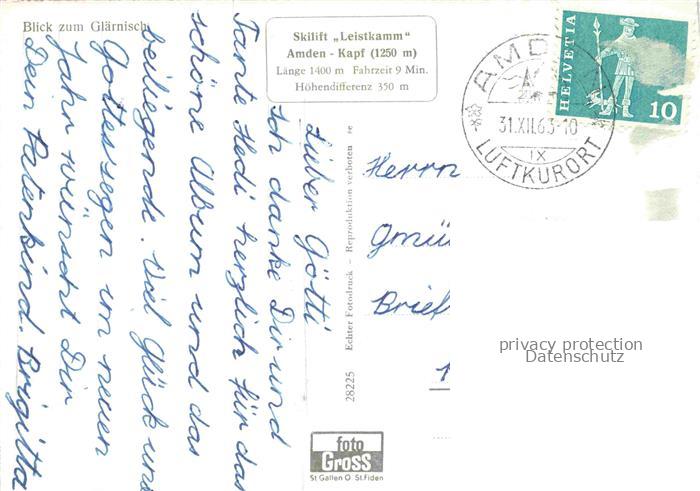 Blick zum Glärnisch
Skilift „Leistkamm“
Amden - Kapf (1250 m)
Länge 1400 m Fahrzeit 9 Min.
Höhendifferenz 350 m
HELVETIA
10
AMDEN
31.XII.63-10
IX
LUFTKURORT
Lieber Götti
Ich danke Dir und
Tante Hedi herzlich für das
schöne Album und das
beiliegende. Viel Glück und
Gottessegen im neuen
Jahr wünscht Dir
Dein Patenkind. Brigitta
28225 Echter Fotodruck - Reproduktion verboten
Herrn
Gmü
Brief
privacy protection
Datenschutz
foto
Gross
St Gallen O St.Fiden